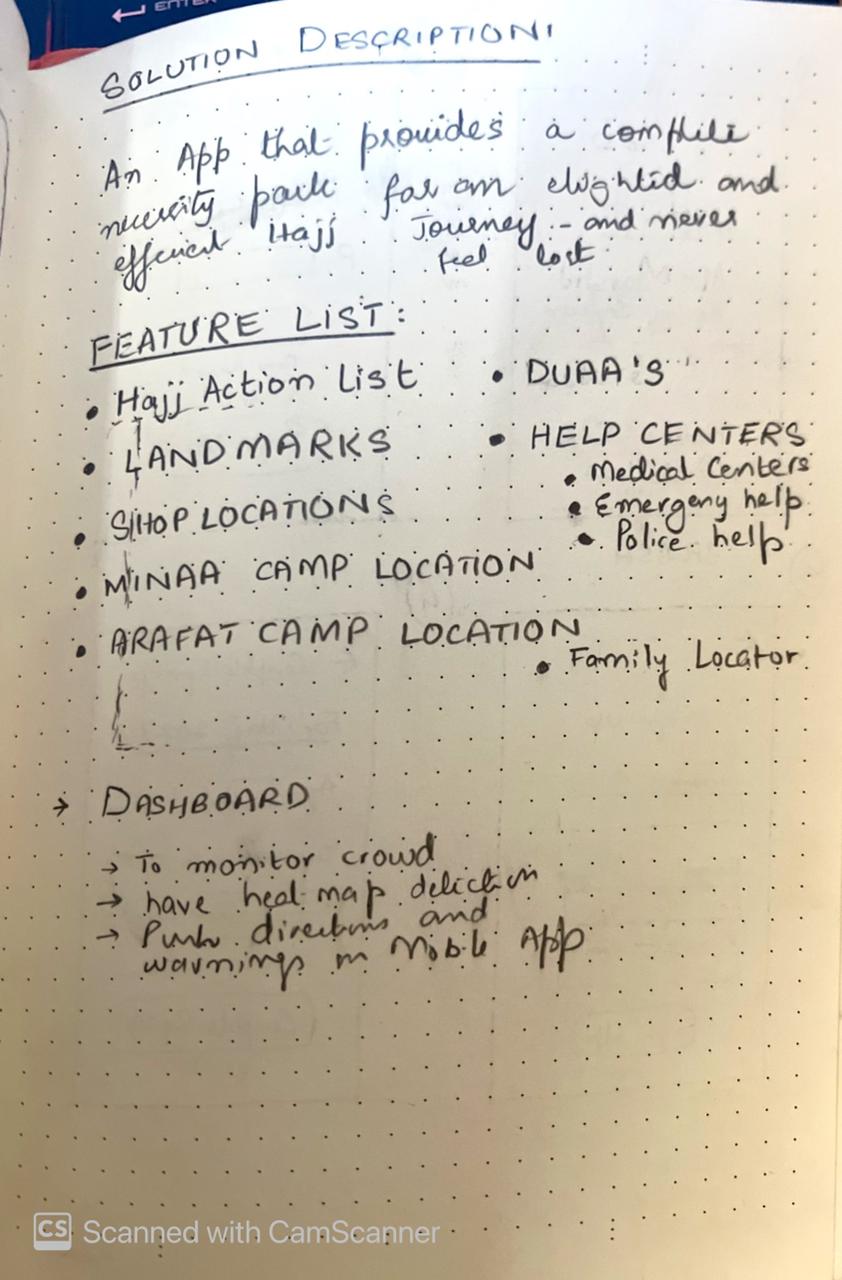 ENTER
SOLUTION DESCRIPTION:
An App that provides a complete
necessity pack for an and
efficient Hajj Journey - and never
feel lost
FEATURE LIST:
• Hajj Action List
• LANDMARKS
• SHOP LOCATIONS
• MINAA CAMP LOCATION
• ARAFAT CAMP LOCATION
• DUAA'S
• HELP CENTERS
• Medical Centers
• Emergeny help
• Police help
• Family Locator
→ DASHBOARD
→ To monitor crowd
→ have heat map detection
→ Push directions and
warnings in Mobile App
CS Scanned with CamScanner